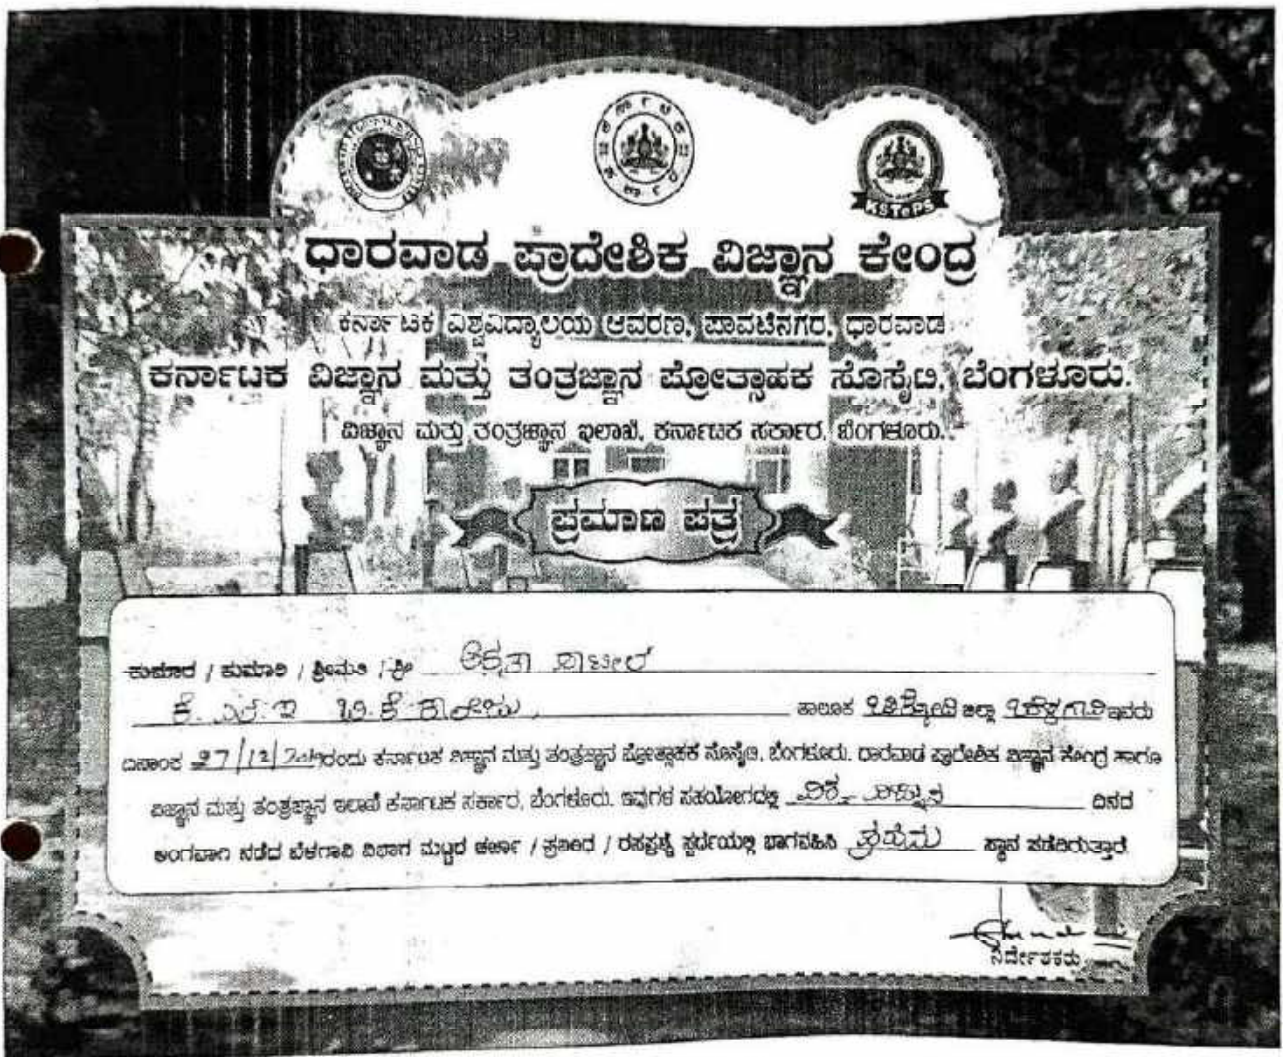 KSTePS
ಧಾರವಾಡ ಪ್ರಾದೇಶಿಕ ವಿಜ್ಞಾನ ಕೇಂದ್ರ
ಕರ್ನಾಟಕ ವಿಶ್ವವಿದ್ಯಾಲಯ ಆವರಣ, ಪಾವಟೆನಗರ, ಧಾರವಾಡ
ಕರ್ನಾಟಕ ವಿಜ್ಞಾನ ಮತ್ತು ತಂತ್ರಜ್ಞಾನ ಪ್ರೋತ್ಸಾಹಕ ಸೊಸೈಟಿ, ಬೆಂಗಳೂರು.
ವಿಜ್ಞಾನ ಮತ್ತು ತಂತ್ರಜ್ಞಾನ ಇಲಾಖೆ, ಕರ್ನಾಟಕ ಸರ್ಕಾರ, ಬೆಂಗಳೂರು.
ಪ್ರಮಾಣ ಪತ್ರ
ಕುಮಾರ / ಕುಮಾರಿ / ಶ್ರೀಮತಿ / ಶ್ರೀ ಪಾಟೀಲ
ಕೆ. ಎಲ್. ಇ ಬಿ. ಕೆ ಕಾಲೇಜು, ತಾಲೂಕ ಚಿಕ್ಕೋಡಿ ಜಿಲ್ಲಾ ಬೆಳಗಾವಿ ಇವರು
ದಿನಾಂಕ ರಂದು ಕರ್ನಾಟಕ ವಿಜ್ಞಾನ ಮತ್ತು ತಂತ್ರಜ್ಞಾನ ಪ್ರೋತ್ಸಾಹಕ ಸೊಸೈಟಿ, ಬೆಂಗಳೂರು. ಧಾರವಾಡ ಪ್ರಾದೇಶಿಕ ವಿಜ್ಞಾನ ಕೇಂದ್ರ ಹಾಗೂ
ವಿಜ್ಞಾನ ಮತ್ತು ತಂತ್ರಜ್ಞಾನ ಇಲಾಖೆ ಕರ್ನಾಟಕ ಸರ್ಕಾರ, ಬೆಂಗಳೂರು. ಇವುಗಳ ಸಹಯೋಗದಲ್ಲಿ ದಿನದ
ಅಂಗವಾಗಿ ನಡೆದ ಬೆಳಗಾವಿ ವಿಭಾಗ ಮಟ್ಟದ ಚರ್ಚಾ / ಪ್ರಬಂಧ / ರಸಪ್ರಶ್ನೆ ಸ್ಪರ್ಧೆಯಲ್ಲಿ ಭಾಗವಹಿಸಿ ಪ್ರಥಮ ಸ್ಥಾನ ಪಡೆದಿರುತ್ತಾರೆ.
ನಿರ್ದೇಶಕರು